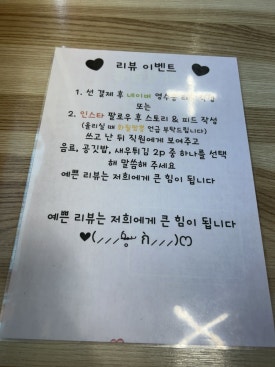 리뷰 이벤트
1. 선 결제 후 네이버 영수증 리뷰 작성
또는
2. 인스타 팔로우 후 스토리 & 피드 작성
(올리실 때 언급 부탁드립니다)
쓰고 난 뒤 직원에게 보여주고
음료, 공깃밥, 새우튀김 2p 중 하나를 선택
해 말씀해 주세요
예쁜 리뷰는 저희에게 큰 힘이 됩니다
예쁜 리뷰는 저희에게 큰 힘이 됩니다